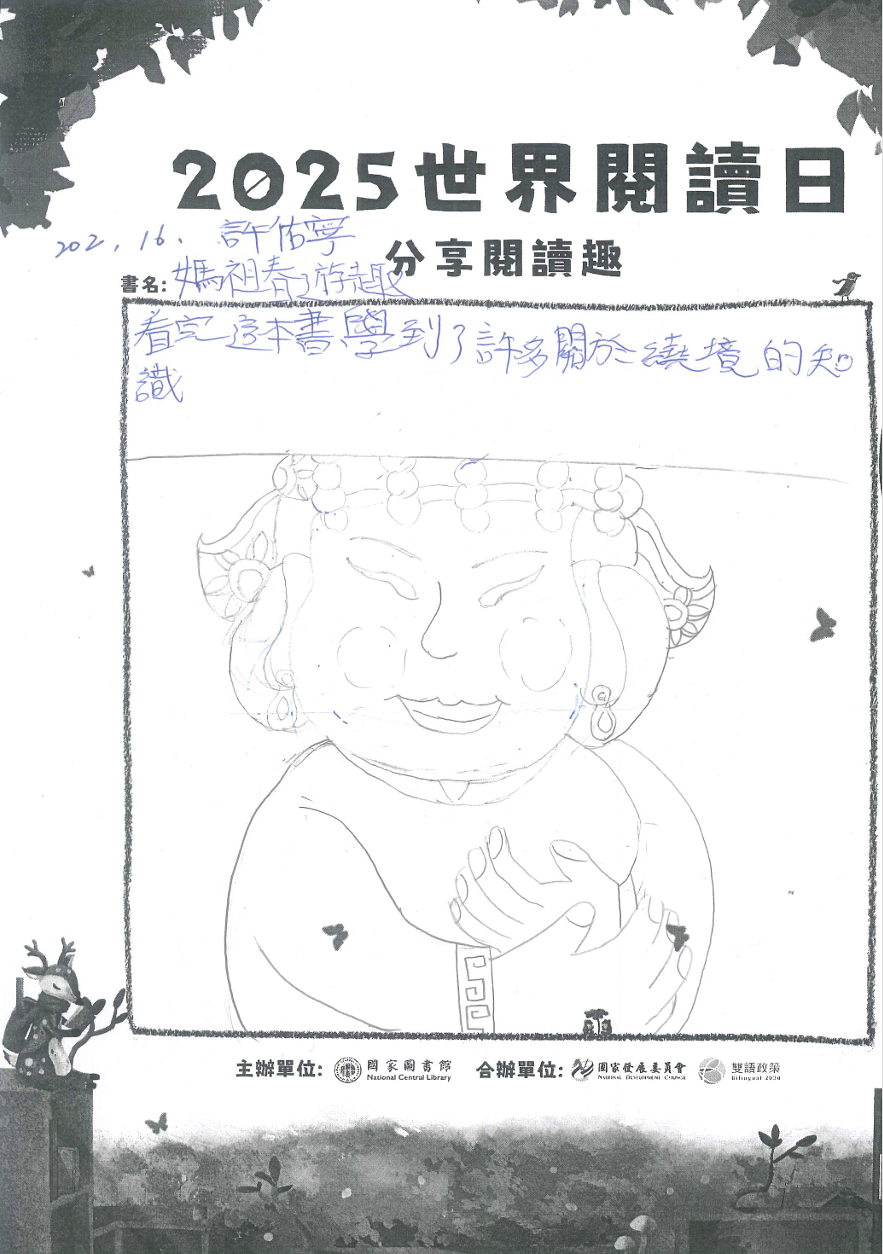 2025世界閱讀日
202, 16. 許佑寧
分享閱讀趣
書名: 媽祖春遊趣
看完這本書學到了許多關於繞境的知
識
主辦單位: 國家圖書館 National Central Library 合辦單位: 國家發展委員會 National Development Council 雙語政策 Bilingual 2030